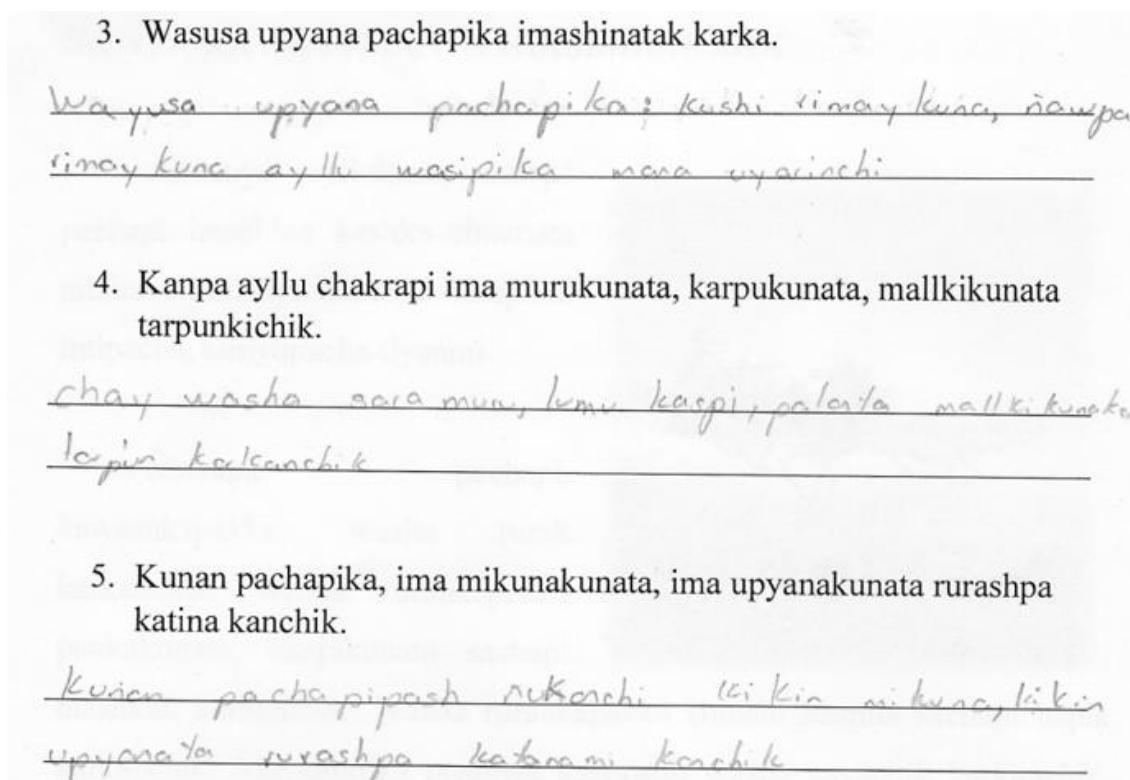 3. Wasusa upyana pachapika imashinatak karka.
Wayusa upyana pachapika; kushi rimaykuna, ñawpa
rimay kuna ayllu wasipika mana uyarinchi
4. Kanpa ayllu chakrapi ima murukunata, karpukunata, mallkikunata
tarpunkichik.
chay washa sara muru, lumu kaspi, palata mallki
kakanchik
5. Kunan pachapika, ima mikunakunata, ima upyanakunata rurashpa
katina kanchik.
kunan pachapipash ñukanchi kikin mikuna, kikin
upyanata rurashpa katanami kanchik